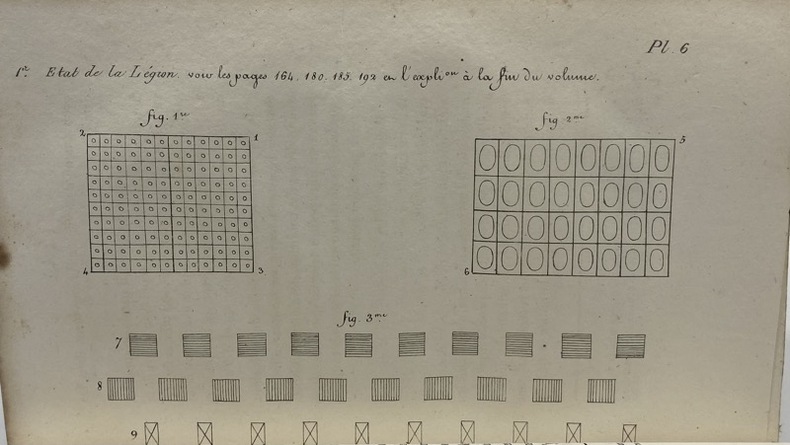 Pl. 6
1er. Etat de la Légion. voir les pages 164, 180, 185, 192 et l'explion à la fin du volume.
fig. 1re
fig 2me
2 1
5
4 3
6
fig. 3me
7
8
9